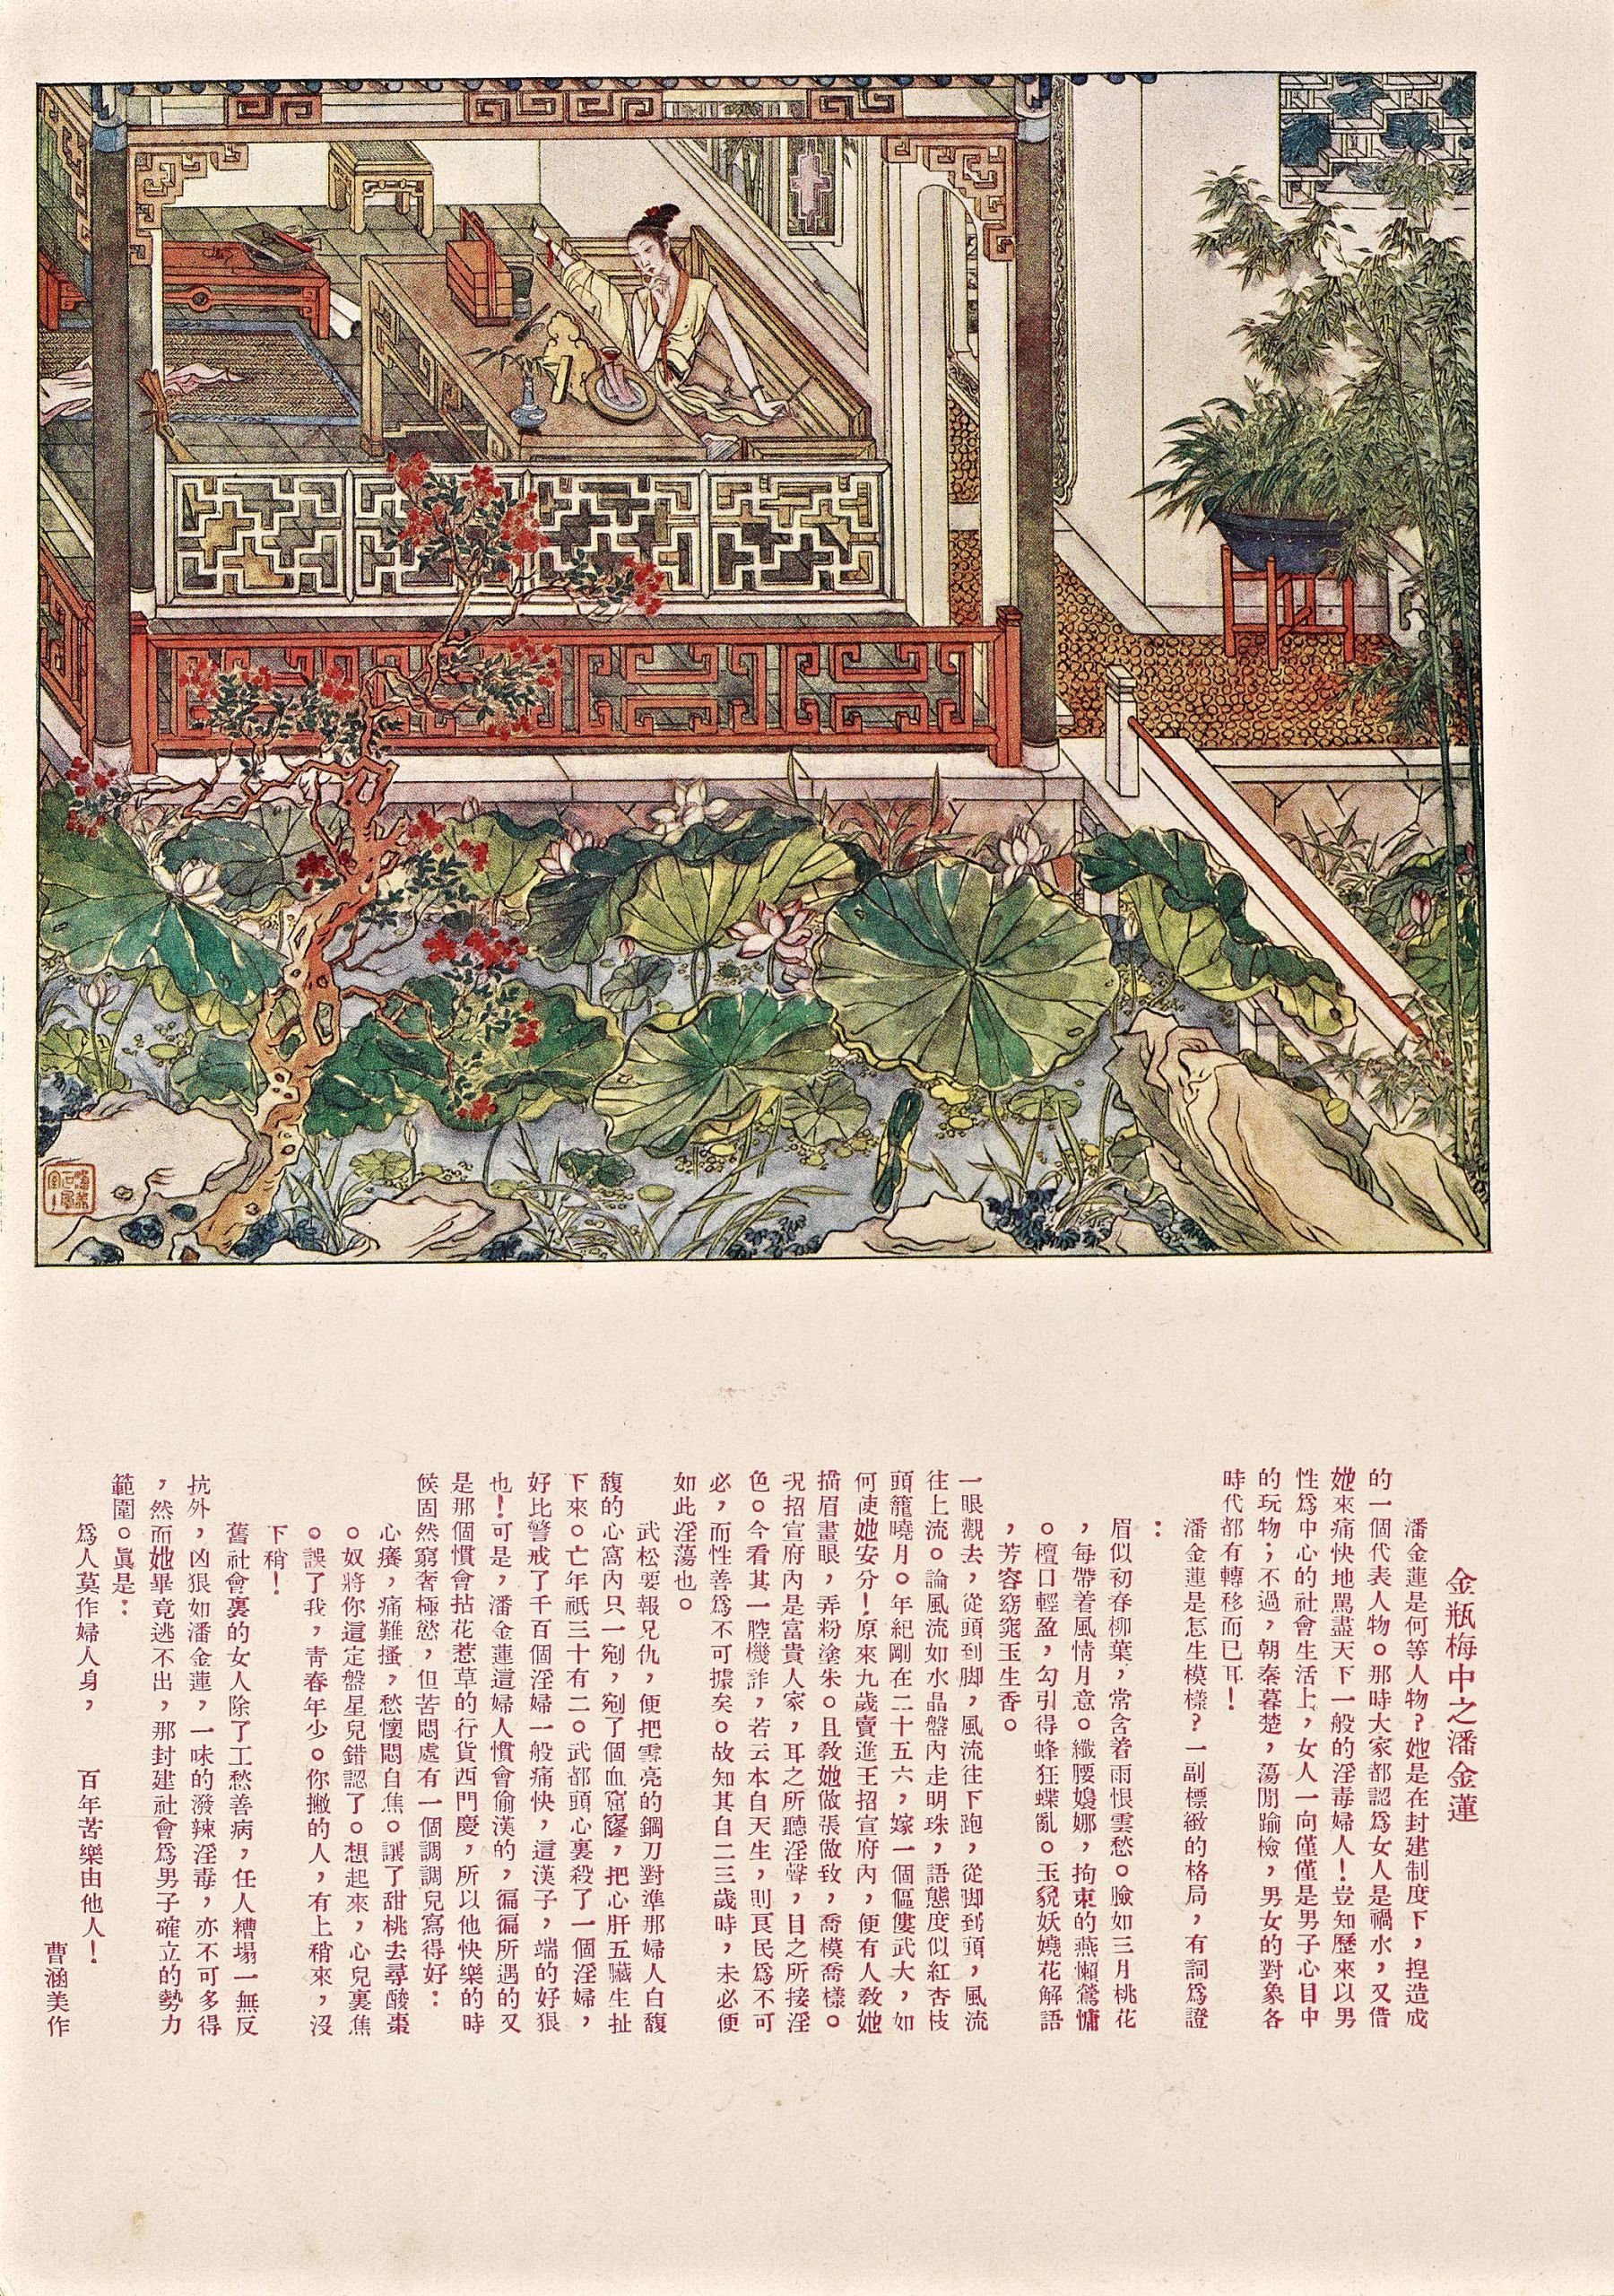 金瓶梅中之潘金蓮
潘金蓮是何等人物？她是在封建制度下，揑造成
的一個代表人物。那時大家都認爲女人是禍水，又借
她來痛快地罵盡天下一般的淫毒婦人！豈知歷來以男
性爲中心的社會生活上，女人一向僅僅是男子心目中
的玩物；不過，朝秦暮楚，蕩閒踰檢，男女的對象各
時代都有轉移而已耳！
潘金蓮是怎生模樣？一副標緻的格局，有詞爲證
：
眉似初春柳葉，常含着雨恨雲愁。臉如三月桃花
，每帶着風情月意。纖腰嬝娜，拘束的燕懶鶯慵
。檀口輕盈，勾引得蜂狂蝶亂。玉貌妖嬈花解語
，芳容窈窕玉生香。
一眼觀去，從頭到脚，風流往下跑，從脚到頭，風流
往上流。論風流如水晶盤內走明珠，語態度似紅杏枝
頭籠曉月。年紀剛在二十五六，嫁一個傴僂武大，如
何使她安分！原來九歲賣進王招宣府內，便有人敎她
描眉畫眼，弄粉塗朱。且敎她做張做致，喬模喬樣。
况招宣府內是富貴人家，耳之所聽淫聲，目之所接淫
色。今看其一腔機詐，若云本自天生，則良民爲不可
必，而性善爲不可據矣。故知其自二三歲時，未必便
如此淫蕩也。
武松要報兄仇，便把雪亮的鋼刀對準那婦人白馥
馥的心窩內只一剜，剜了個血窟窿，把心肝五臟生扯
下來。亡年祇三十有二。武都頭心裏殺了一個淫婦，
好比警戒了千百個淫婦一般痛快，這漢子，端的好狠
也！可是，潘金蓮這婦人慣會偷漢的，徧徧所遇的又
是那個慣會拈花惹草的行貨西門慶，所以他快樂的時
候固然窮奢極慾，但苦悶處有一個調調兒寫得好：
心癢，痛難搔，愁懷悶自焦。讓了甜桃去尋酸棗
。奴將你這定盤星兒錯認了。想起來，心兒裏焦
。誤了我，靑春年少。你撇的人，有上稍來，沒
下稍！
舊社會裏的女人除了工愁善病，任人糟塌一無反
抗外，凶狠如潘金蓮，一味的潑辣淫毒，亦不可多得
，然而她畢竟逃不出，那封建社會爲男子確立的勢力
範圍。眞是：
爲人莫作婦人身，　百年苦樂由他人！
曹涵美作